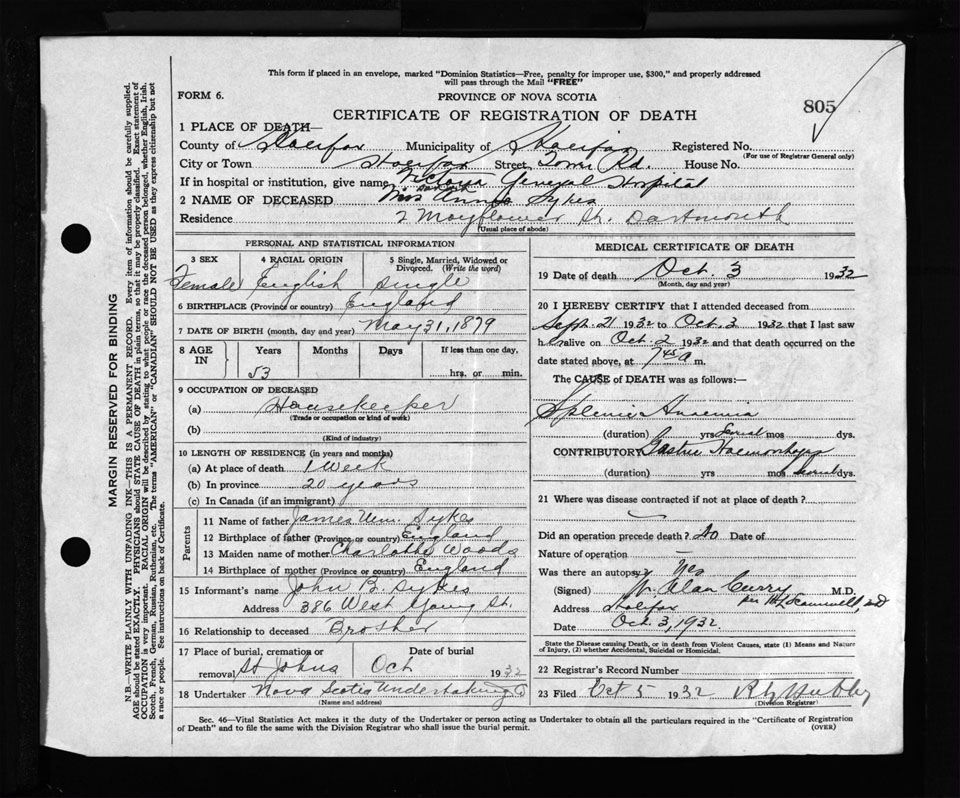 This form if placed in an envelope, marked "Dominion Statistics—Free, penalty for improper use, $300," and properly addressed
will pass through the Mail "FREE"
FORM 6.
PROVINCE OF NOVA SCOTIA
805
CERTIFICATE OF REGISTRATION OF DEATH
1 PLACE OF DEATH—
County of Halifax Municipality of Halifax Registered No.
(For use of Registrar General only)
City or Town Halifax Street Tower Rd. House No.
If in hospital or institution, give name Victoria General Hospital
2 NAME OF DECEASED Annie Sykes
Residence 7 Mayflower St. Dartmouth
(Usual place of abode)
PERSONAL AND STATISTICAL INFORMATION
3 SEX 4 RACIAL ORIGIN 5 Single, Married, Widowed or Divorced. (Write the word)
Female English Single
6 BIRTHPLACE (Province or country) England
7 DATE OF BIRTH (month, day and year) May 31, 1879
8 AGE IN Years Months Days If less than one day,
53 hrs. or min.
9 OCCUPATION OF DECEASED
(a) Housekeeper
(Trade or occupation or kind of work)
(b)
(Kind of industry)
10 LENGTH OF RESIDENCE (in years and months)
(a) At place of death 1 Week
(b) In province 20 years
(c) In Canada (if an immigrant)
Parents
11 Name of father James Wm. Sykes
12 Birthplace of father (Province or country) England
13 Maiden name of mother Charlotte Woods
14 Birthplace of mother (Province or country) England
15 Informant's name John B. Sykes
Address 386 West Young St.
16 Relationship to deceased Brother
17 Place of burial, cremation or removal St Johns Date of burial Oct 1932
18 Undertaker Nova Scotia Undertaking Co
(Name and address)
MEDICAL CERTIFICATE OF DEATH
19 Date of death Oct. 3 1932
(Month, day and year)
20 I HEREBY CERTIFY that I attended deceased from
Sept. 21 1932 to Oct. 3 1932 that I last saw
h alive on Oct. 2 1932 and that death occurred on the
date stated above, at 7 45 a m.
The CAUSE of DEATH was as follows:—
Splenic Anaemia
(duration) yrs several mos dys.
CONTRIBUTORY Gastric Haemorrhage
(duration) yrs mos several dys.
21 Where was disease contracted if not at place of death?
Did an operation precede death? No Date of
Nature of operation —
Was there an autopsy No
(Signed) W. Alan Curry M.D.
Address Halifax
Date Oct. 3, 1932.
State the Disease causing Death, or in death from Violent Causes, state (1) Means and Nature
of Injury, (2) whether Accidental, Suicidal or Homicidal.
22 Registrar's Record Number
23 Filed Oct 5 1932
(Division Registrar)
Sec. 46—Vital Statistics Act makes it the duty of the Undertaker or person acting as Undertaker to obtain all the particulars required in the "Certificate of Registration
of Death" and to file the same with the Division Registrar who shall issue the burial permit. (OVER)
MARGIN RESERVED FOR BINDING
N.B.—WRITE PLAINLY WITH UNFADING INK—THIS IS A PERMANENT RECORD. Every item of information should be carefully supplied.
AGE should be stated EXACTLY. PHYSICIANS should STATE CAUSE OF DEATH in plain terms, so that it may be properly classified. Exact statement of
OCCUPATION is very important. RACIAL ORIGIN will be described by stating to what people or race the deceased person belonged, whether English, Irish,
Scotch, French, German, Russian, Ruthenian, etc. The terms "AMERICAN" or "CANADIAN" SHOULD NOT BE USED as they express citizenship but not
a race or people. See instructions on back of Certificate.